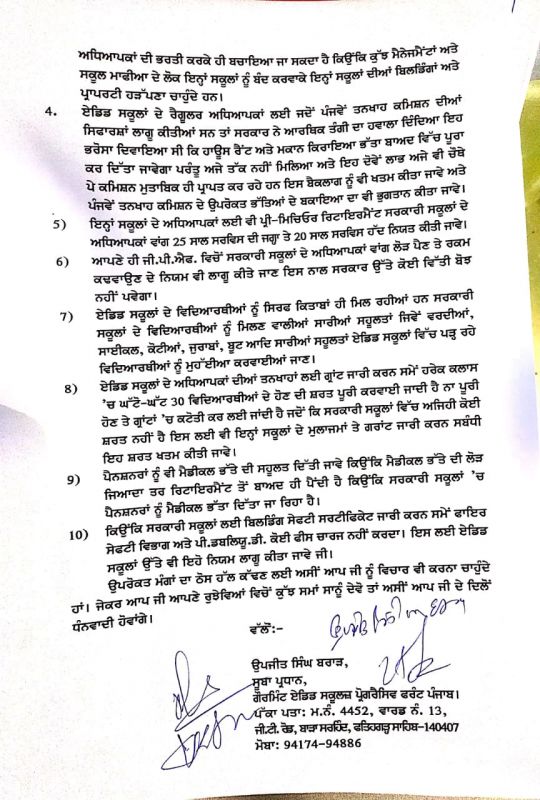 ਅਧਿਆਪਕਾਂ ਦੀ ਭਰਤੀ ਕਰਕੇ ਹੀ ਬਚਾਇਆ ਜਾ ਸਕਦਾ ਹੈ ਕਿਉਂਕਿ ਕੁੱਝ ਮੈਨੇਜਮੈਂਟਾਂ ਅਤੇ
ਸਕੂਲ ਮਾਫੀਆ ਦੇ ਲੋਕ ਇਨ੍ਹਾਂ ਸਕੂਲਾਂ ਨੂੰ ਬੰਦ ਕਰਵਾਕੇ ਇਨ੍ਹਾਂ ਸਕੂਲਾਂ ਦੀਆਂ ਬਿਲਡਿੰਗਾਂ ਅਤੇ
ਪ੍ਰਾਪਰਟੀ ਹੜੱਪਣਾ ਚਾਹੁੰਦੇ ਹਨ।
4. ਏਡਿਡ ਸਕੂਲਾਂ ਦੇ ਰੈਗੂਲਰ ਅਧਿਆਪਕਾਂ ਲਈ ਜਦੋਂ ਪੰਜਵੇਂ ਤਨਖਾਹ ਕਮਿਸ਼ਨ ਦੀਆਂ
ਸਿਫਾਰਸ਼ਾਂ ਲਾਗੂ ਕੀਤੀਆਂ ਸਨ ਤਾਂ ਸਰਕਾਰ ਨੇ ਆਰਥਿਕ ਤੰਗੀ ਦਾ ਹਵਾਲਾ ਦਿੰਦਿਆ ਇਹ
ਭਰੋਸਾ ਦਿਵਾਇਆ ਸੀ ਕਿ ਹਾਊਸ ਰੈਂਟ ਅਤੇ ਮਕਾਨ ਕਿਰਾਇਆ ਭੱਤਾ ਬਾਅਦ ਵਿੱਚ ਪੂਰਾ
ਕਰ ਦਿੱਤਾ ਜਾਵੇਗਾ ਪਰੰਤੂ ਅਜੇ ਤੱਕ ਨਹੀਂ ਮਿਲਿਆ ਅਤੇ ਇਹ ਦੋਵੇਂ ਲਾਭ ਅਜੇ ਵੀ ਚੌਥੇ
ਪੇ ਕਮਿਸ਼ਨ ਮੁਤਾਬਿਕ ਹੀ ਪ੍ਰਾਪਤ ਕਰ ਰਹੇ ਹਨ ਇਸ ਬੈਕਲਾਗ ਨੂੰ ਵੀ ਖਤਮ ਕੀਤਾ ਜਾਵੇ ਅਤੇ
ਪੰਜਵੇਂ ਤਨਖਾਹ ਕਮਿਸ਼ਨ ਦੇ ਉਪਰੋਕਤ ਭੱਤਿਆਂ ਦੇ ਬਕਾਇਆ ਦਾ ਵੀ ਭੁਗਤਾਨ ਕੀਤਾ ਜਾਵੇ।
5) ਇਨ੍ਹਾਂ ਸਕੂਲਾਂ ਦੇ ਅਧਿਆਪਕਾਂ ਲਈ ਵੀ ਪ੍ਰੀ-ਮਿਚਿਓਰ ਰਿਟਾਇਰਮੈਂਟ ਸਰਕਾਰੀ ਸਕੂਲਾਂ ਦੇ
ਅਧਿਆਪਕਾਂ ਵਾਂਗ 25 ਸਾਲ ਸਰਵਿਸ ਦੀ ਜਗ੍ਹਾ ਤੇ 20 ਸਾਲ ਸਰਵਿਸ ਹੱਦ ਨਿਯਤ ਕੀਤੀ ਜਾਵੇ।
6) ਆਪਣੇ ਹੀ ਜੀ.ਪੀ.ਐਫ. ਵਿਚੋਂ ਸਰਕਾਰੀ ਸਕੂਲਾਂ ਦੇ ਅਧਿਆਪਕਾਂ ਵਾਂਗ ਲੋੜ ਪੈਣ ਤੇ ਰਕਮ
ਕਢਵਾਉਣ ਦੇ ਨਿਯਮ ਵੀ ਲਾਗੂ ਕੀਤੇ ਜਾਣ ਇਸ ਨਾਲ ਸਰਕਾਰ ਉੱਤੇ ਕੋਈ ਵਿੱਤੀ ਬੋਝ
ਨਹੀਂ ਪਵੇਗਾ।
7) ਏਡਿਡ ਸਕੂਲਾਂ ਦੇ ਵਿਦਿਆਰਥੀਆਂ ਨੂੰ ਸਿਰਫ ਕਿਤਾਬਾਂ ਹੀ ਮਿਲ ਰਹੀਆਂ ਹਨ ਸਰਕਾਰੀ
ਸਕੂਲਾਂ ਦੇ ਵਿਦਿਆਰਥੀਆਂ ਨੂੰ ਮਿਲਣ ਵਾਲੀਆਂ ਸਾਰੀਆਂ ਸਹੂਲਤਾਂ ਜਿਵੇਂ ਵਰਦੀਆਂ,
ਸਾਈਕਲ, ਕੋਟੀਆਂ, ਜੁਰਾਬਾਂ, ਬੂਟ ਆਦਿ ਸਾਰੀਆਂ ਸਹੂਲਤਾਂ ਏਡਿਡ ਸਕੂਲਾਂ ਵਿੱਚ ਪੜ੍ਹ ਰਹੇ
ਵਿਦਿਆਰਥੀਆਂ ਨੂੰ ਮੁਹੱਈਆ ਕਰਵਾਈਆਂ ਜਾਣ।
8) ਏਡਿਡ ਸਕੂਲਾਂ ਦੇ ਅਧਿਆਪਕਾਂ ਦੀਆਂ ਤਨਖਾਹਾਂ ਲਈ ਗ੍ਰਾਂਟ ਜਾਰੀ ਕਰਨ ਸਮੇਂ ਹਰੇਕ ਕਲਾਸ
'ਚ ਘੱਟੋ-ਘੱਟ 30 ਵਿਦਿਆਰਥੀਆਂ ਦੇ ਹੋਣ ਦੀ ਸ਼ਰਤ ਪੂਰੀ ਕਰਵਾਈ ਜਾਂਦੀ ਹੈ ਨਾ ਪੂਰੀ
ਹੋਣ ਤੇ ਗ੍ਰਾਂਟਾਂ 'ਚ ਕਟੋਤੀ ਕਰ ਲਈ ਜਾਂਦੀ ਹੈ ਜਦੋਂ ਕਿ ਸਰਕਾਰੀ ਸਕੂਲਾਂ ਵਿੱਚ ਅਜਿਹੀ ਕੋਈ
ਸ਼ਰਤ ਨਹੀਂ ਹੈ ਇਸ ਲਈ ਵੀ ਇਨ੍ਹਾਂ ਸਕੂਲਾਂ ਦੇ ਮੁਲਾਜਮਾਂ ਤੇ ਗਰਾਂਟ ਜਾਰੀ ਕਰਨ ਸਬੰਧੀ
ਇਹ ਸ਼ਰਤ ਖਤਮ ਕੀਤੀ ਜਾਵੇ।
9) ਪੈਨਸ਼ਨਰਾਂ ਨੂੰ ਵੀ ਮੈਡੀਕਲ ਭੱਤੇ ਦੀ ਸਹੂਲਤ ਦਿੱਤੀ ਜਾਵੇ ਕਿਉਂਕਿ ਮੈਡੀਕਲ ਭੱਤੇ ਦੀ ਲੋੜ
ਜਿਆਦਾ ਤਰ ਰਿਟਾਇਰਮੈਂਟ ਤੋਂ ਬਾਅਦ ਹੀ ਪੈਂਦੀ ਹੈ ਕਿਉਂਕਿ ਸਰਕਾਰੀ ਸਕੂਲਾਂ 'ਚ
ਪੈਨਸ਼ਨਰਾਂ ਨੂੰ ਮੈਡੀਕਲ ਭੱਤਾ ਦਿੱਤਾ ਜਾ ਰਿਹਾ ਹੈ।
10) ਕਿਉਂਕਿ ਸਰਕਾਰੀ ਸਕੂਲਾਂ ਲਈ ਬਿਲਡਿੰਗ ਸੇਫਟੀ ਸਰਟੀਫਿਕੇਟ ਜਾਰੀ ਕਰਨ ਸਮੇਂ ਫਾਇਰ
ਸੇਫਟੀ ਵਿਭਾਗ ਅਤੇ ਪੀ.ਡਬਲਿਯੂ.ਡੀ. ਕੋਈ ਫੀਸ ਚਾਰਜ ਨਹੀਂ ਕਰਦਾ। ਇਸ ਲਈ ਏਡਿਡ
ਸਕੂਲਾਂ ਉੱਤੇ ਵੀ ਇਹੋ ਨਿਯਮ ਲਾਗੂ ਕੀਤਾ ਜਾਵੇ ਜੀ।
ਉਪਰੋਕਤ ਮੰਗਾਂ ਦਾ ਠੋਸ ਹੱਲ ਕੱਢਣ ਲਈ ਅਸੀਂ ਆਪ ਜੀ ਨੂੰ ਵਿਚਾਰ ਵੀ ਕਰਨਾ ਚਾਹੁੰਦੇ
ਹਾਂ। ਜੇਕਰ ਆਪ ਜੀ ਆਪਣੇ ਰੁਝੇਵਿਆ ਵਿਚੋਂ ਕੁੱਝ ਸਮਾਂ ਸਾਨੂੰ ਦੇਵੋ ਤਾਂ ਅਸੀਂ ਆਪ ਜੀ ਦੇ ਦਿਲੋਂ
ਧੰਨਵਾਦੀ ਹੋਵਾਂਗੇ।
ਵੱਲੋਂ:-
ਉਪਜੀਤ ਸਿੰਘ ਬਰਾੜ,
ਸੂਬਾ ਪ੍ਰਧਾਨ,
ਗੋਰਮਿੰਟ ਏਡਿਡ ਸਕੂਲਜ਼ ਪ੍ਰੋਗਰੈਸਿਵ ਫਰੰਟ ਪੰਜਾਬ।
ਪੱਕਾ ਪਤਾ: ਮ.ਨੰ. 4452, ਵਾਰਡ ਨੰ. 13,
ਜੀ.ਟੀ. ਰੋਡ, ਬਾੜਾ ਸਰਹਿੰਦ, ਫਤਿਹਗੜ੍ਹ ਸਾਹਿਬ-140407
ਮੋਬਾ: 94174-94886